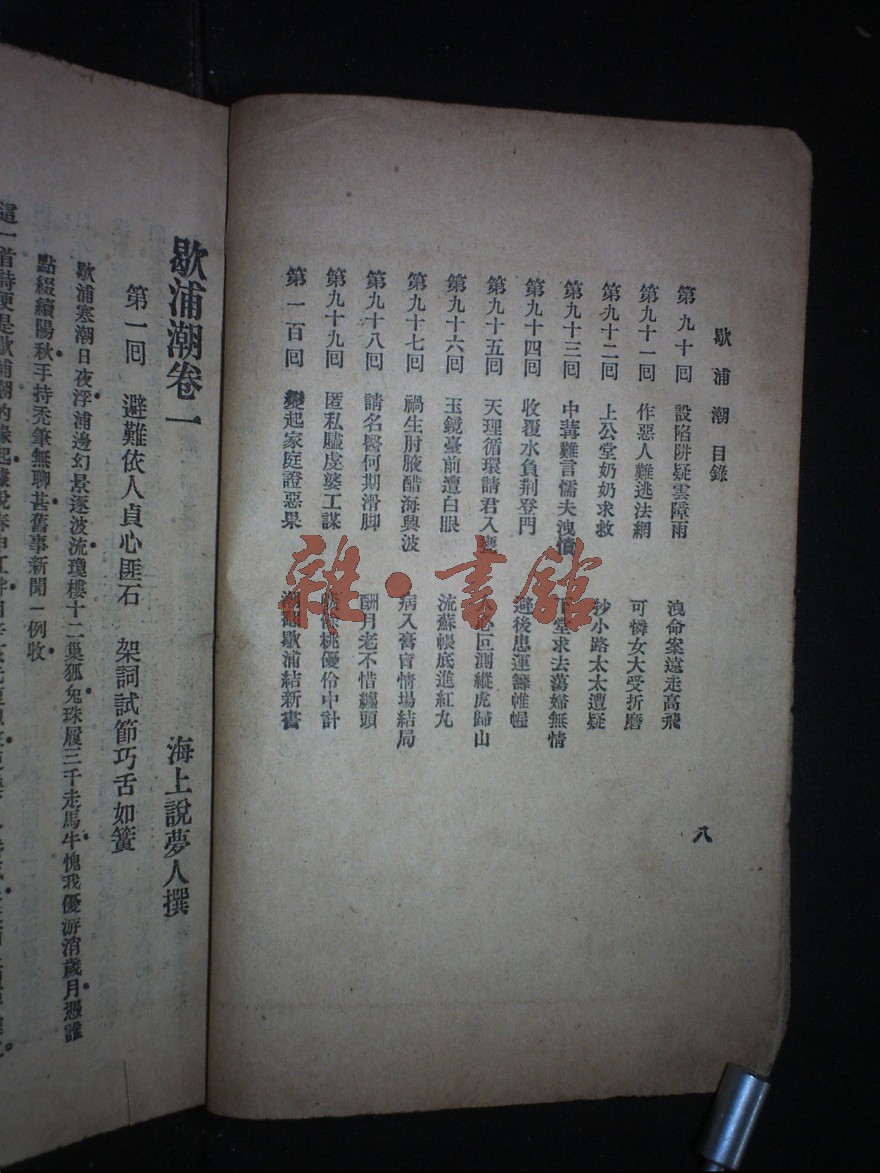 歇浦潮目錄
第九十回 設陷阱疑雲障雨 洩命案遠走高飛
第九十一回 作惡人難逃法網 可憐女大受折磨
第九十二回 上公堂奶奶求救 抄小路太太遭疑
第九十三回 中冓難言懦夫洩憤 堂求去蕩婦無情
第九十四回 收覆水負荆登門 避後患運籌帷幄
第九十五回 天理循環請君入甕 心叵測縱虎歸山
第九十六回 玉鏡臺前遭白眼 流蘇帳底進紅丸
第九十七回 禍生肘腋醋海興波 病入膏肓情場結局
第九十八回 請名醫何期滑脚 酬月老不惜纏頭
第九十九回 匿私贜虔婆工謀 桃優伶中計
第一百回 變起家庭證惡果 潮歇浦結新書
八
歇浦潮卷一
海上說夢人撰
第一回 避難依人貞心匪石 架詞試節巧舌如簧
歇浦寒潮日夜浮浦邊幻景逐波流瓊樓十二巢狐兔珠履三千走馬牛愧我優游消歲月憑誰
點綴續陽秋手持禿筆無聊甚舊事新聞一例收
這一首詩便是歇浦潮的緣起
雜·書館